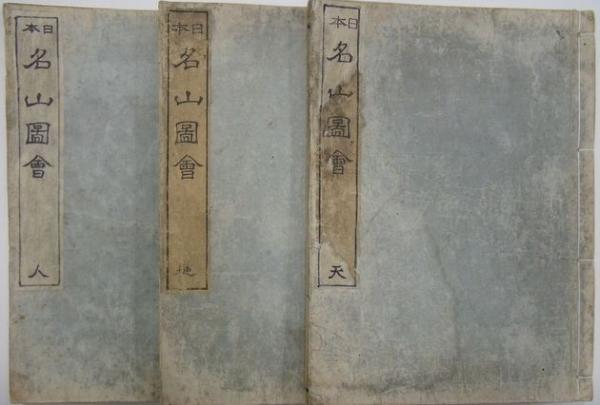 日本
名山圖會
天
日本
名山圖會
地
日本
名山圖會
人